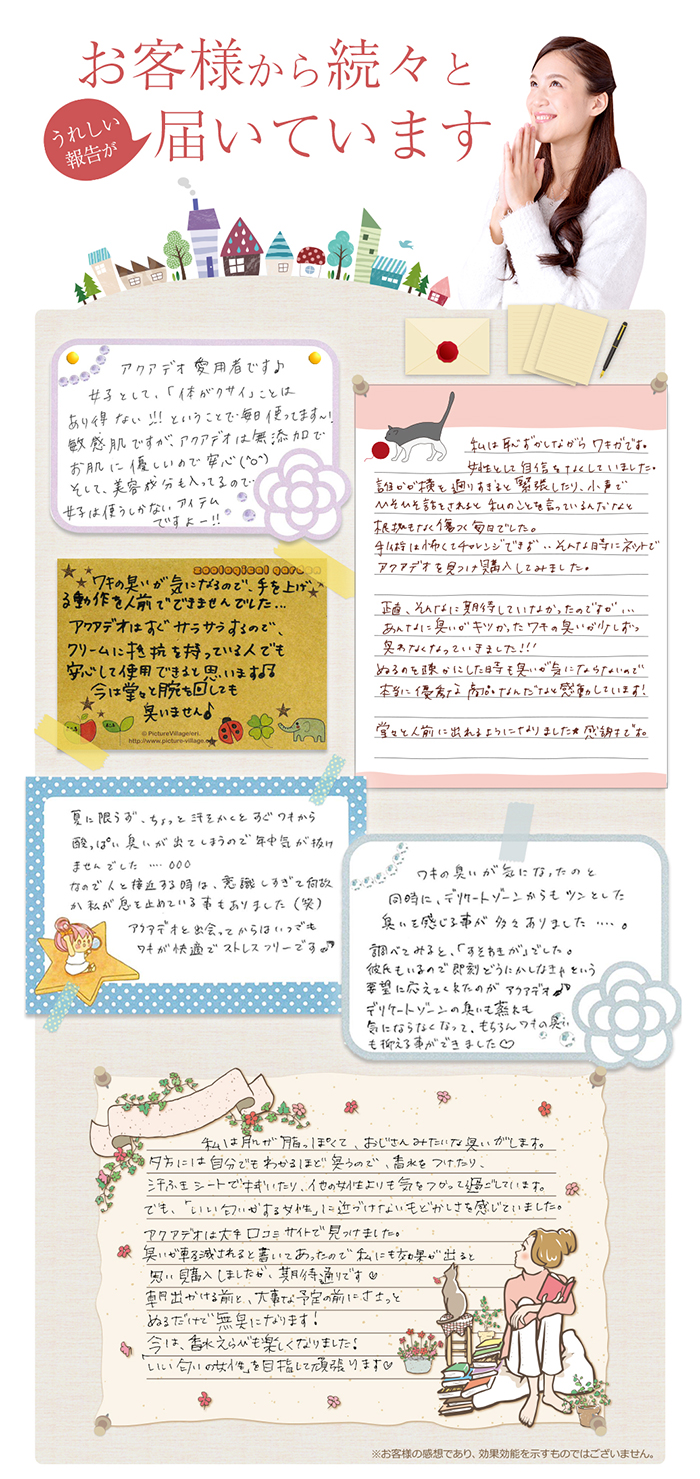 お客様から続々と
うれしい
報告が
届いています
アクアデオ愛用者です♪
女子として、「体がクサイ」ことは
あり得ない!!!ということで毎日使ってます～!
敏感肌ですが、アクアデオは無添加で
お肌に優しいので安心(^o^)
そして、美容成分も入ってるので
女子は使うしかないアイテム
ですよー!!
私は恥ずかしながらワキガです。
女性として自信をなくしていました。
誰かが横を通りすぎると緊張したり、小声で
ひそひそ話をされると私のことを言っているんだなと
根拠もなく傷つく毎日でした。
手術は怖くてチャレンジできず‥そんな時にネットで
アクアデオを見つけ購入してみました。
正直、そんなに期待していなかったのですが…
あんなに臭いがキツかったワキの臭いが少しずつ
臭わなくなっていきました!!!
ぬるのを疎かにした時も臭いが気にならないので
本当に優秀な商品なんだなと感動しています!
堂々と人前に出れるようになりました★感謝です。
zoological garden
ワキの臭いが気になるので、手を上げ
る動作を人前でできませんでした…
アクアデオはすぐサラサラするので、
クリームに抵抗を持っている人でも
安心して使用できると思います♫
今は堂々と腕を回しても
臭いません♪
© PictureVillage/eri.
http://www.picture-village.
夏に限らず、ちょっと汗をかくとすぐワキから
酸っぱい臭いが出てしまうので年中気が抜け
ませんでした….ooo
なので人と接近する時は、意識しすぎて何故
か私が息を止めている事もありました(笑)
アクアデオと出会ってからはいつでも
ワキが快適でストレスフリーです♪
ワキの臭いが気になったのと
同時に、デリケートゾーンからもツンとした
臭いを感じる事が多々ありました….。
調べてみると、「すそわきが」でした。
彼氏もいるので即刻どうにかしなきゃという
要望に応えてくれたのがアクアデオ♪
デリケートゾーンの臭いも蒸れも
気にならなくなって、もちろんワキの臭い
も抑える事ができました♡
私は肌が脂っぽくて、おじさんみたいな臭いがします。
夕方には自分でもわかるほど臭うので、香水をつけたり、
汗ふきシートでふいたり、他の女性よりも気をつかって過ごしています。
でも、「いい匂いがする女性」に近づけないもどかしさを感じていました。
アクアデオは大手口コミサイトで見つけました。
臭いが軽減されると書いてあったので私にも効果が出ると
思い購入しましたが、期待通りです♡
朝出かける前と、大事な予定の前にささっと
ぬるだけで無臭になります!
今は、香水えらびも楽しくなりました!
「いい匂いの女性」を目指して頑張ります♡
※お客様の感想であり、効果効能を示すものではございません。